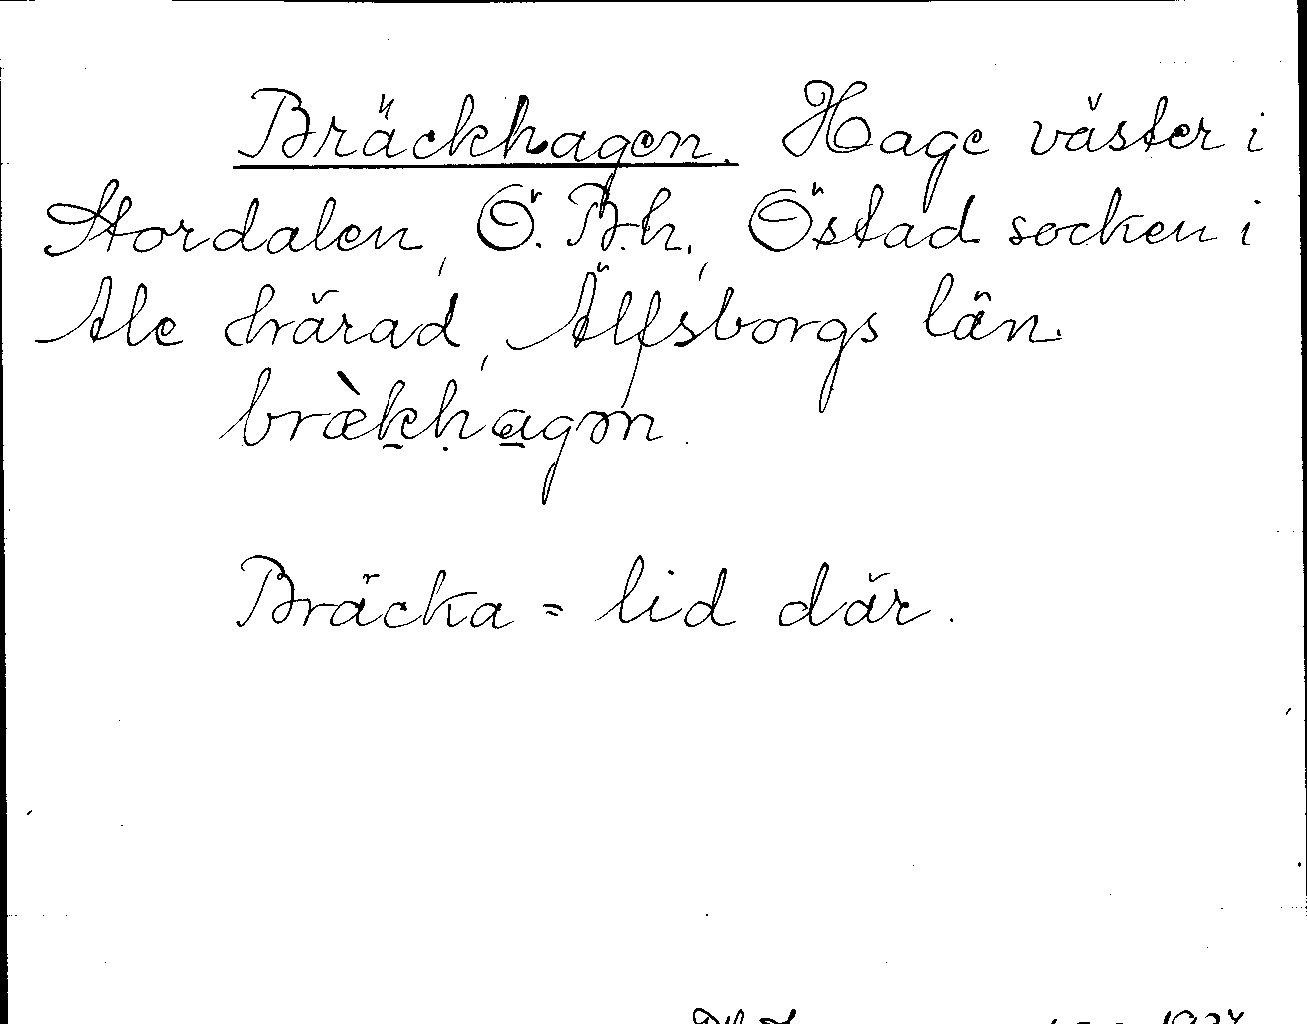 Bräckhagen. Hage väster i
Stordalen, Ö. B.h., Östad socken i
Ale härad, Älfsborgs län.
brækhagən.
Bräcka = lid där.